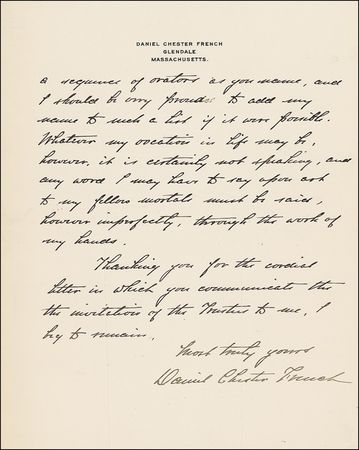 DANIEL CHESTER FRENCH
GLENDALE
MASSACHUSETTS.
a sequence of orators as you name, and
I should be very proud to add my
name to such a list if it were possible.
Whatever my vocation in life may be,
however, it is certainly not speaking, and
any word I may have to say upon art
to my fellow mortals must be said,
however imperfectly, through the work of
my hands.
Thanking you for the cordial
letter in which you communicate the
the invitation of the Trustees to me, I
beg to remain,
Most truly yours
Daniel Chester French